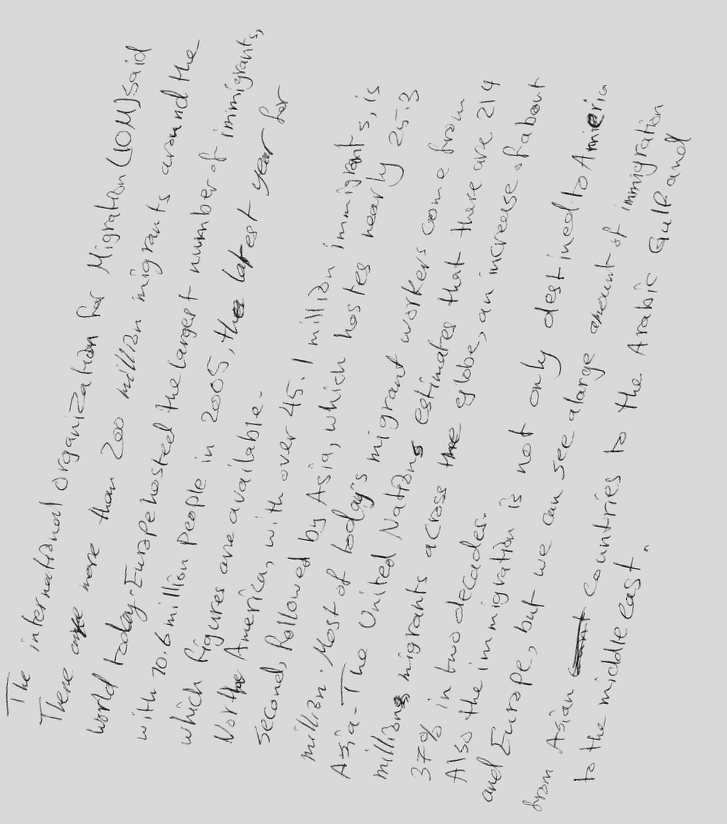 The international Organization for Migration (IOM) said
There are more than 200 million migrants around the
world today. Europe hosted the largest number of immigrants,
with 70.6 million People in 2005, the latest year for
which figures are available.
North America, with over 45.1 million immigrants, is
second, followed by Asia, which hostes nearly 25.3
million. Most of today's migrant workers come from
Asia - The United Nations estimates that there are 214
millions migrants across the globe, an increase of about
37% in two decades.
Also the immigration is not only destined to America
and Europe, but we can see alarge amount of immigration
from Asian countries to the Arabic Gulf and
to the middle east.